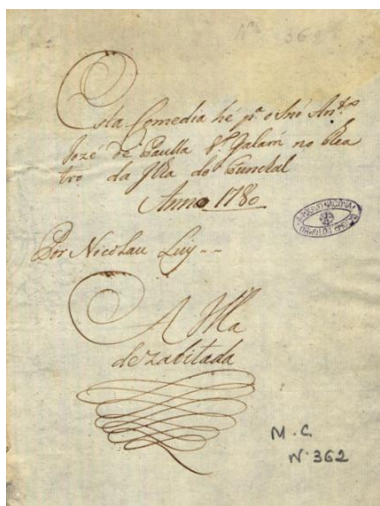 Nº 362
Esta Comedia hé pª o Snr Antº
Jozé de Paulla 1º Galam no Thea
tro da Ilha do Funchal
Anno 1780
Por Nicolau Luiz --
A Ilha
dezabitada
M. C.
Nº 362